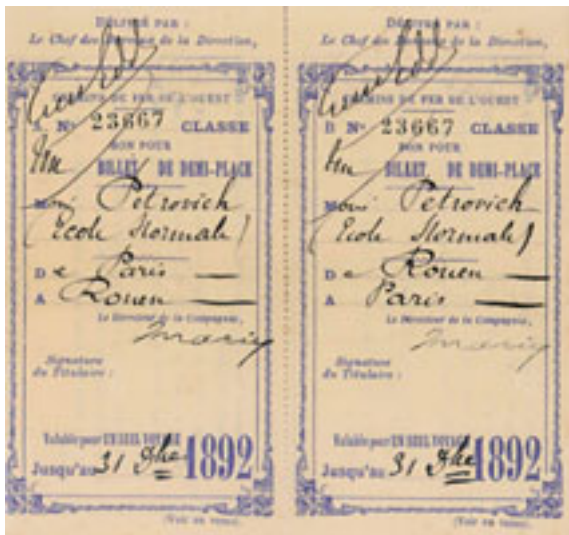 DÉLIVRÉ PAR :
Le Chef des de la Direction,
CHEMINS DE FER DE L'OUEST
A N° 23667 CLASSE
BON POUR
Un BILLET DE DEMI-PLACE
Petrovich
(Ecole Normale)
De Paris
A Rouen
Le Directeur de la Compagnie,
Signature
du Titulaire :
Valable pour UN SEUL VOYAGE
Jusqu'au 31 1892
(Voir au verso)
DÉLIVRÉ PAR :
Le Chef des de la Direction,
CHEMINS DE FER DE L'OUEST
B N° 23667 CLASSE
BON POUR
Un BILLET DE DEMI-PLACE
Petrovich
(Ecole Normale)
De Rouen
A Paris
Le Directeur de la Compagnie,
Signature
du Titulaire :
Valable pour UN SEUL VOYAGE
Jusqu'au 31 1892
(Voir au verso)